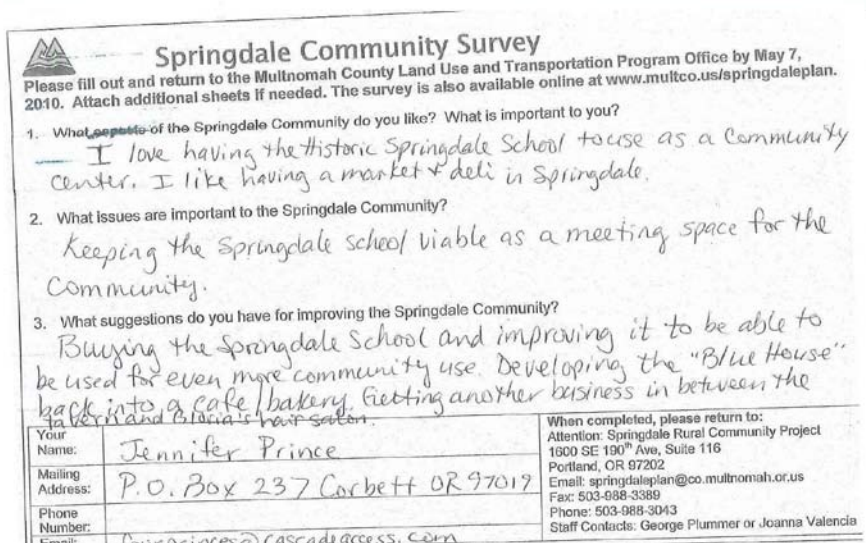 Springdale Community Survey
Please fill out and return to the Multnomah County Land Use and Transportation Program Office by May 7,
2010. Attach additional sheets if needed. The survey is also available online at www.multco.us/springdaleplan.
1. What of the Springdale Community do you like? What is important to you?
I love having the Historic Springdale School to use as a Community
center. I like having a market & deli in Springdale.
2. What issues are important to the Springdale Community?
Keeping the Springdale School viable as a meeting space for the
Community.
3. What suggestions do you have for improving the Springdale Community?
Buying the Springdale School and improving it to be able to
be used for even more community use. Developing the "Blue House"
back into a cafe/bakery. Getting another business in between the
tavern and Gloria's hair salon.
Your
Name: Jennifer Prince
Mailing
Address: P.O. Box 237 Corbett OR 97019
Phone
Number:
Email: @cascadeaccess.com
When completed, please return to:
Attention: Springdale Rural Community Project
1600 SE 190th Ave, Suite 116
Portland, OR 97202
Email: springdaleplan@co.multnomah.or.us
Fax: 503-988-3389
Phone: 503-988-3043
Staff Contacts: George Plummer or Joanna Valencia